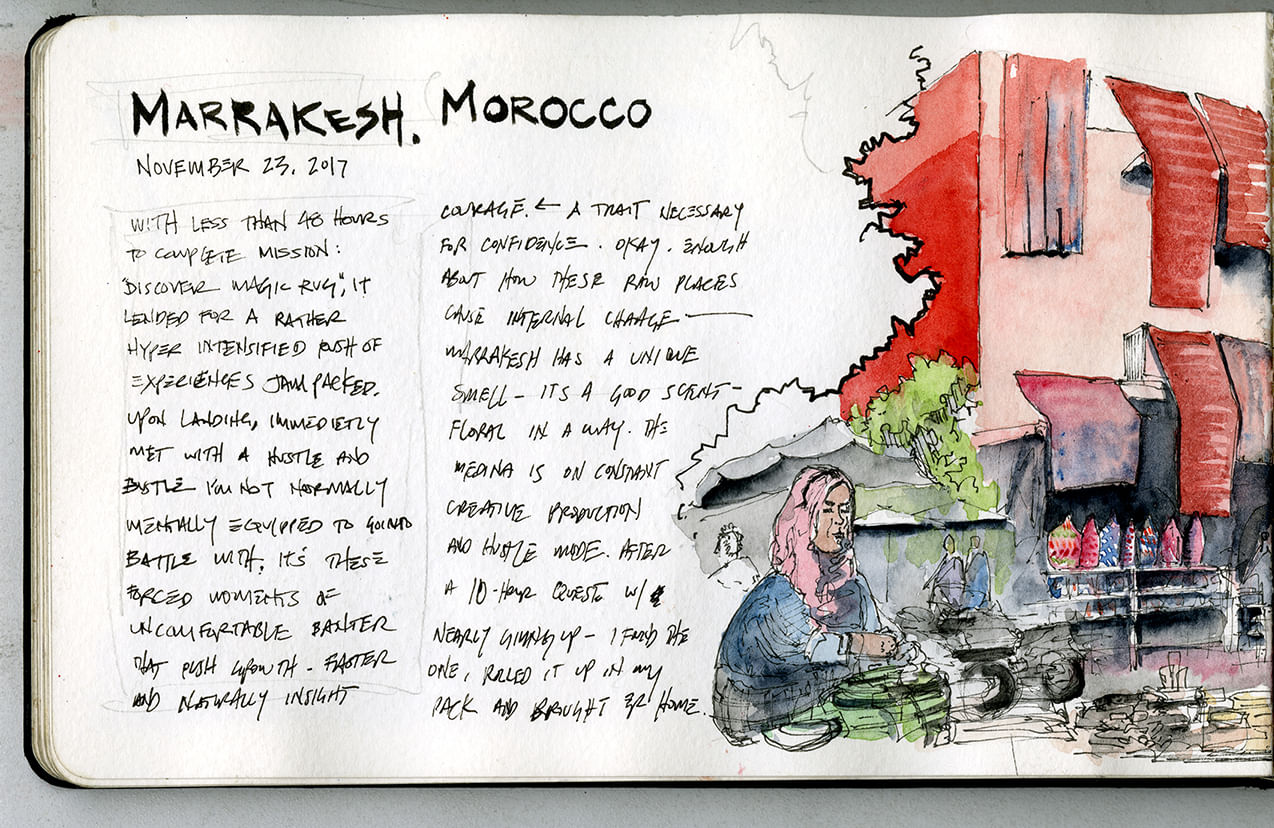 MARRAKESH. MOROCCO
NOVEMBER 23, 2017
WITH LESS THAN 48 HOURS
TO COMPLETE MISSION:
"DISCOVER MAGIC RUG", IT
LENDED FOR A RATHER
HYPER INTENSIFIED PUSH OF
EXPERIENCES JAM PACKED.
UPON LANDING, IMMEDIETLY
MET WITH A HUSTLE AND
BUSTLE I'M NOT NORMALLY
MENTALLY EQUIPPED TO GOING
BATTLE WITH. IT'S THESE
FORCED MOMENTS OF
UNCOMFORTABLE BANTER
THAT PUSH GROWTH - FASTER
AND NATURALLY INSIGHT
COURAGE. ← A TRAIT NECESSARY
FOR CONFIDENCE. OKAY. ENOUGH
ABOUT HOW THESE RAW PLACES
CAUSE INTERNAL CHANGE —
MARRAKESH HAS A UNIQUE
SMELL - ITS A GOOD SCENT -
FLORAL IN A WAY. THE
MEDINA IS ON CONSTANT
CREATIVE PRODUCTION
AND HUSTLE MODE. AFTER
A 10-HOUR QUEST W/
NEARLY GIVING UP - I FOUND THE
ONE, ROLLED IT UP IN MY
PACK AND BROUGHT ER HOME.